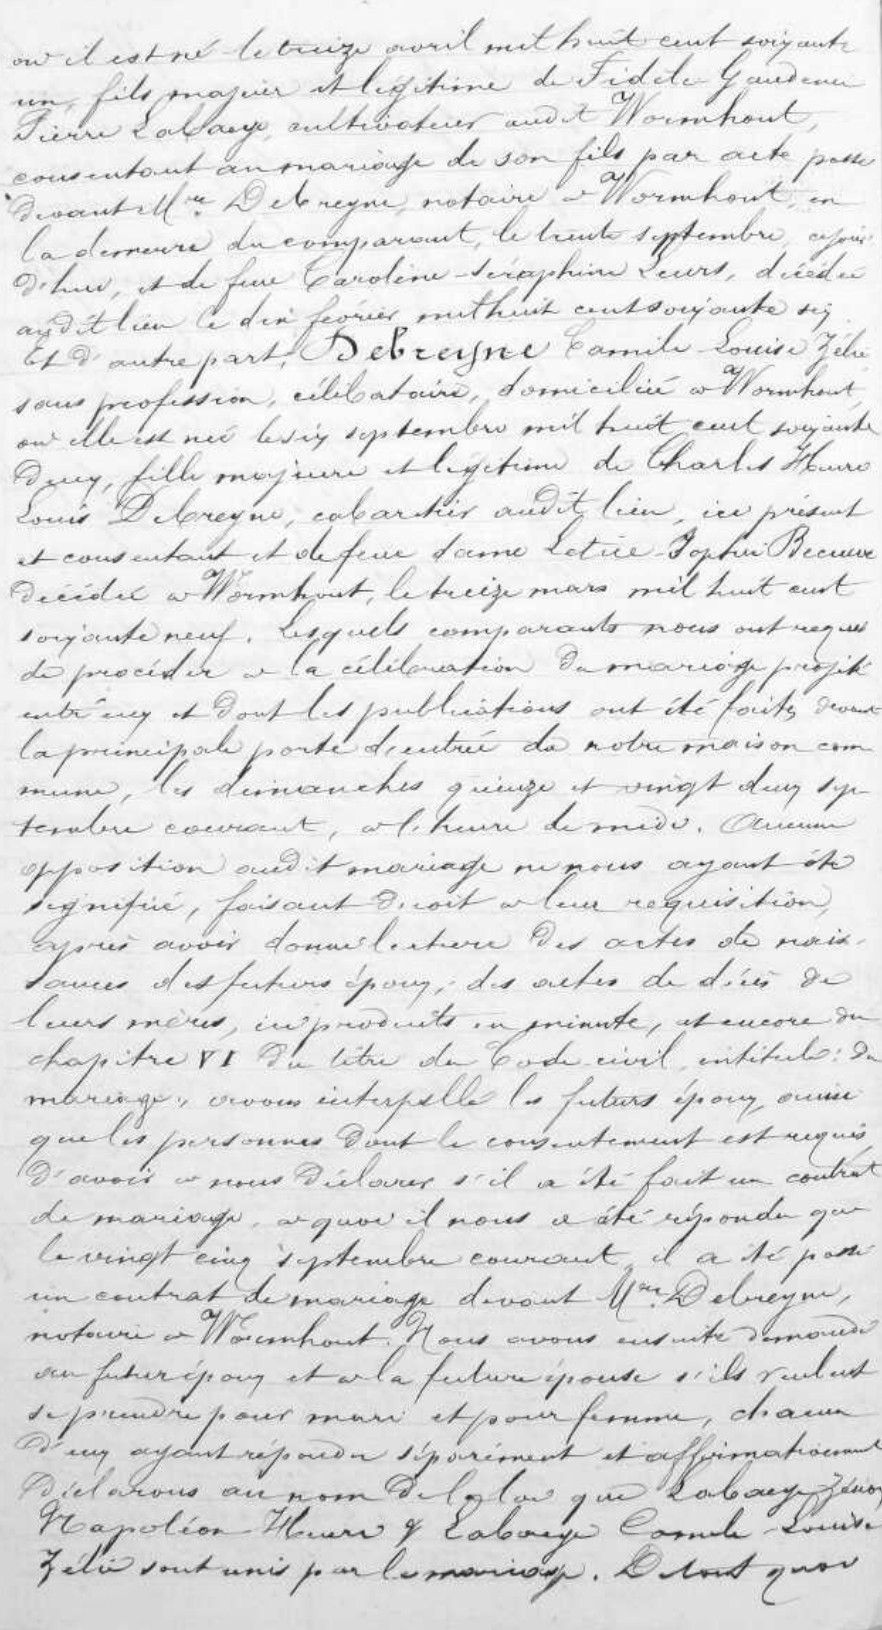 où il est né le treize avril mil huit cent soixante
un, fils majeur et légitime de Fidèle Gaudence
Pierre Labaeye, cultivateur audit Wormhout,
consentant au mariage de son fils par acte passé
devant Mre Debreyne, notaire à Wormhout, en
la demeure du comparant, le trente septembre, cejour
d'hui, et de feue Caroline Séraphine Leurs, décédée
audit lieu le dix février mil huit cent soixante six.
Et d'autre part, Debreyne Camile Louise Zélie
sans profession, célibataire, domiciliée à Wormhout,
où elle est née le six septembre mil huit cent soixante
deux, fille majeure et légitime de Charles Henri
Louis Debreyne, cabaretier audit lieu, ici présent
et consentant et de feue dame Leticie Sophie
décédée à Wormhout, le treize mars mil huit cent
soixante neuf. Lesquels comparants nous ont requis
de procéder à la célébration du mariage projeté
entr'eux et dont les publications ont été faites devant
la principale porte d'entrée de notre maison com
mune, les dimanches quinze et vingt deux sep
tembre courant, à l'heure de midi. Aucune
opposition audit mariage ne nous ayant été
signifiée, faisant droit à leur requisition,
après avoir donné lecture des actes de nais-
sances des futurs époux, des actes de décès de
leurs mères, ici produits en minute, et encore du
chapitre VI du titre du Code civil intitulé: du
mariage, avons interpellé les futurs époux, ainsi
que les personnes dont le consentement est requis
d'avoir à nous déclarer s'il a été fait un contrat
de mariage, à quoi il nous a été répondu que
le vingt cinq septembre courant, il a été passé
un contrat de mariage devant Mre Debreyne,
notaire à Wormhout. Nous avons ensuite demandé
au futur époux et à la future épouse s'ils veulent
se prendre pour mari et pour femme, chacun
d'eux ayant répondu séparément et affirmativement
Déclarons au nom de la loi que Labaeye
Napoléon Henri & Labaeye Camile Louise
Zélie sont unis par le mariage. De tout quoi